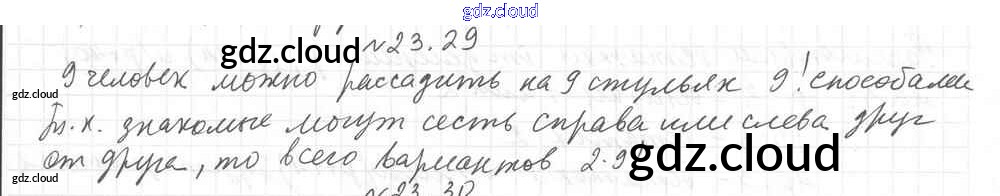 gdz.cloud
gdz.cloud №23.29
9 человек можно рассадить на 9 стульях 9! способами
gdz.cloud gdz.cloud
Т.к. знакомые могут сесть справа или слева друг
от друга, то всего вариантов 2·9!
gdz.cloud gdz.cloud
№23.30